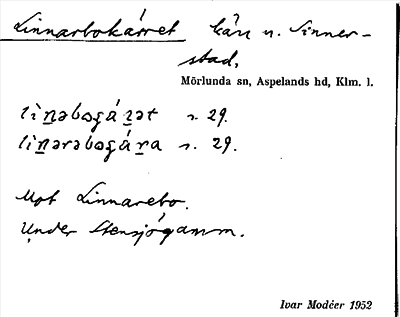 Linnarbokärret kärr n. Sinner-
stad.
Mörlunda sn, Aspelands hd, Klm. l.
s. 29.
s. 29.
Mot Linnarebo.
Under Stensjögamm.
Ivar Modéer 1952